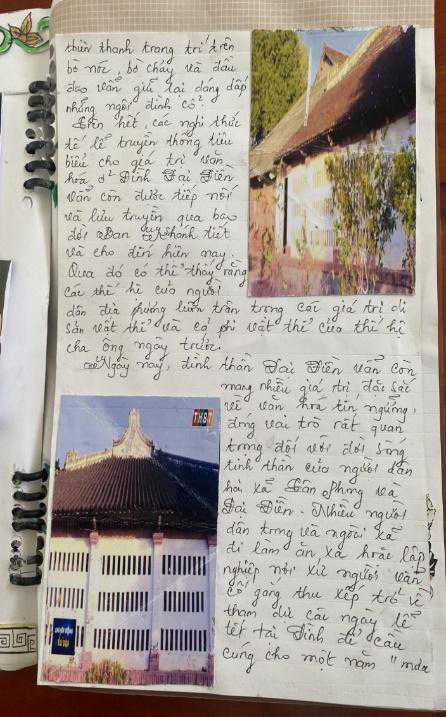 thún thanh trang trí trên
bờ nóc, bờ chảy và đầu
đao vẫn giữ lại dáng dấp
những ngôi đình cổ.
Trên hết, các nghi thức
tế lễ truyền thống tiêu
biểu cho giá trị văn
hóa ở Đình Đại Điền
vẫn còn được tiếp nối
và lưu truyền qua bao
đời Ban Khánh tiết
và cho đến hiện nay.
Qua đó có thể thấy rằng
các thế hệ của người
dân địa phương luôn trân trọng các giá trị di
sản vật thể và cả phi vật thể của thế hệ
cha ông ngày trước.
Ngày nay, đình thần Đại Điền vẫn còn
mang nhiều giá trị đặc sắc
về văn hóa tín ngưỡng,
đóng vai trò rất quan
trọng đối với đời sống
tinh thần của người dân
hai xã Tân Phong và
Đại Điền. Nhiều người
dân trong và ngoài xã
đi làm ăn xa hoặc lập
nghiệp nơi xứ người vẫn
cố gắng thu xếp trở về
tham dự các ngày lễ
tết tại Đình để cầu
cúng cho một năm "mưa
THBT